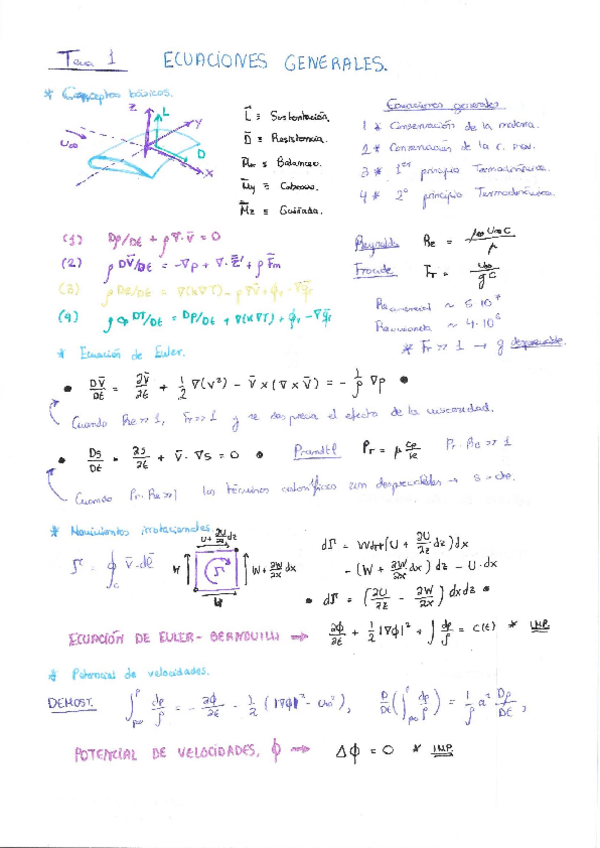 Tema 1 ECUACIONES GENERALES.
* Conceptos básicos.
Z
L
Y
U∞
D
X
L̄ ≡ Sustentación.
D̄ ≡ Resistencia.
≡ Balanceo.
M̄y ≡ Cabeceo.
M̄z ≡ Guiñada.
Ecuaciones generales
1 * Conservación de la materia.
2 * Conservación de la c. mov.
3 * 1er principio Termodinámica.
4 * 2º principio Termodinámica.
(1) Dρ/Dt + ρ∇·v̄ = 0
(2) ρ Dv̄/Dt = -∇p + ∇·τ̄' + ρ F̄m
(3) ρ De/Dt = ∇(k∇T) - p∇v̄ + ϕv - ∇q̄r
(4) ρ cp DT/Dt = Dp/Dt + ∇(k∇T) + ϕv - ∇q̄r
Reynolds Re = ρ∞ U∞ C / μ
Froude Fr = U∞ / gC
~ 5·10⁷
~ 4·10⁶
* Fr >> 1 → g despreciable.
* Ecuación de Euler.
• Dv̄/Dt = ∂v̄/∂t + 1/2 ∇(v²) - v̄ × (∇ × v̄) = - 1/ρ ∇p •
Cuando Re >> 1, Fr >> 1 y se desprecia el efecto de la viscosidad.
• Ds/Dt = ∂s/∂t + v̄·∇s = 0 • Prandtl Pr = μ cp/k Pr·Re >> 1
Cuando Pr·Re >> 1 los términos caloríficos son despreciables → s = cte.
* Movimientos irrotacionales.
Γ = ∮c v̄·dl̄
U + ∂U/∂z dz
W
Γ
W + ∂W/∂x dx
(U + ∂U/∂z dz) dx
- (W + ∂W/∂x dx) dz - U·dx
• dΓ = (∂U/∂z - ∂W/∂x) dxdz •
ECUACIÓN DE EULER-BERNOUILLI → ∂ϕ/∂t + 1/2 |∇ϕ|² + ∫ dp/ρ = C(t) * IMP.
* Potencial de velocidades.
DEMOST. ∫p∞^p dp/ρ = - ∂ϕ/∂t - 1/2 (|∇ϕ|² - U∞²), D/Dt (∫p∞^p dp/ρ) = 1/ρ a² Dρ/Dt,
POTENCIAL DE VELOCIDADES, ϕ → Δϕ = 0 * IMP.